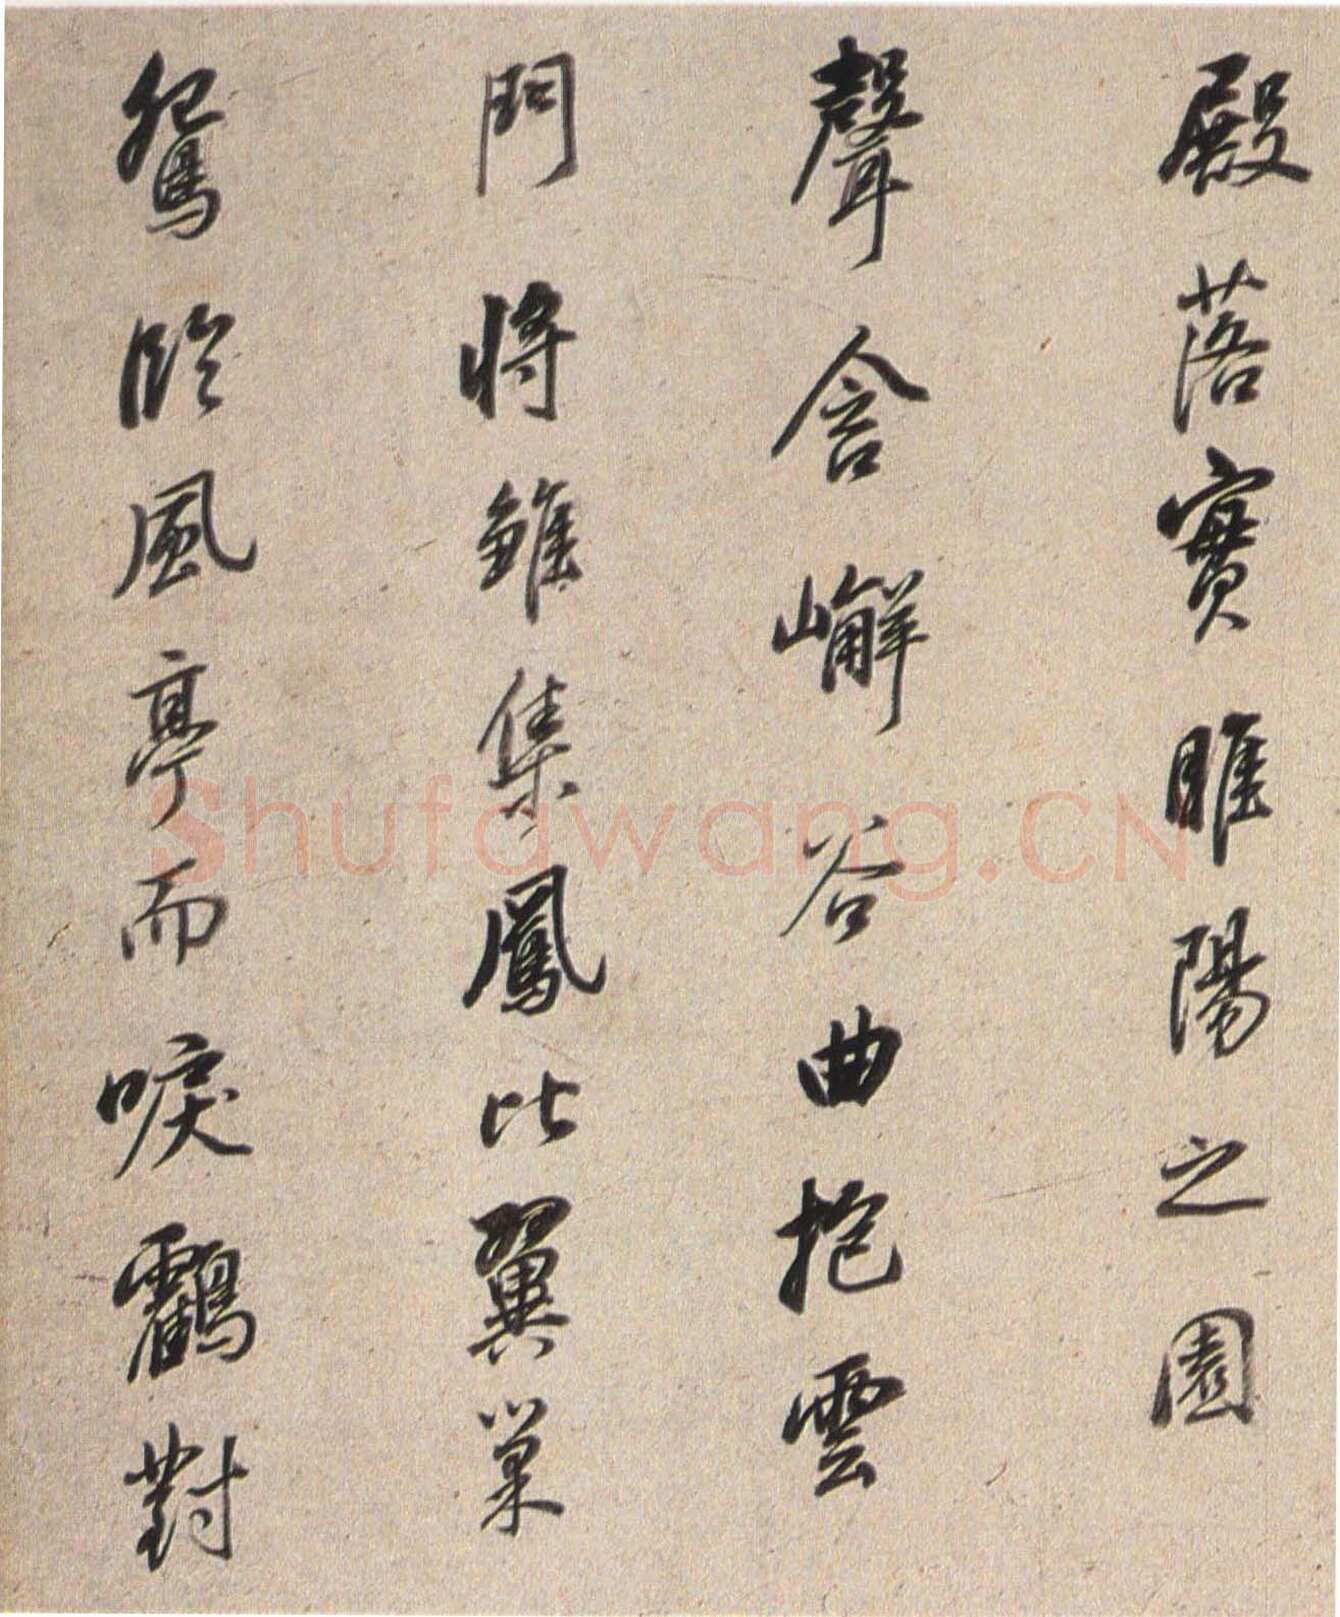 殿落實睢陽之園
聲含嶰谷曲抱雲
門將雛集鳳比翼巢
鴛臨風亭而唳鶴對
Shufawang.CN